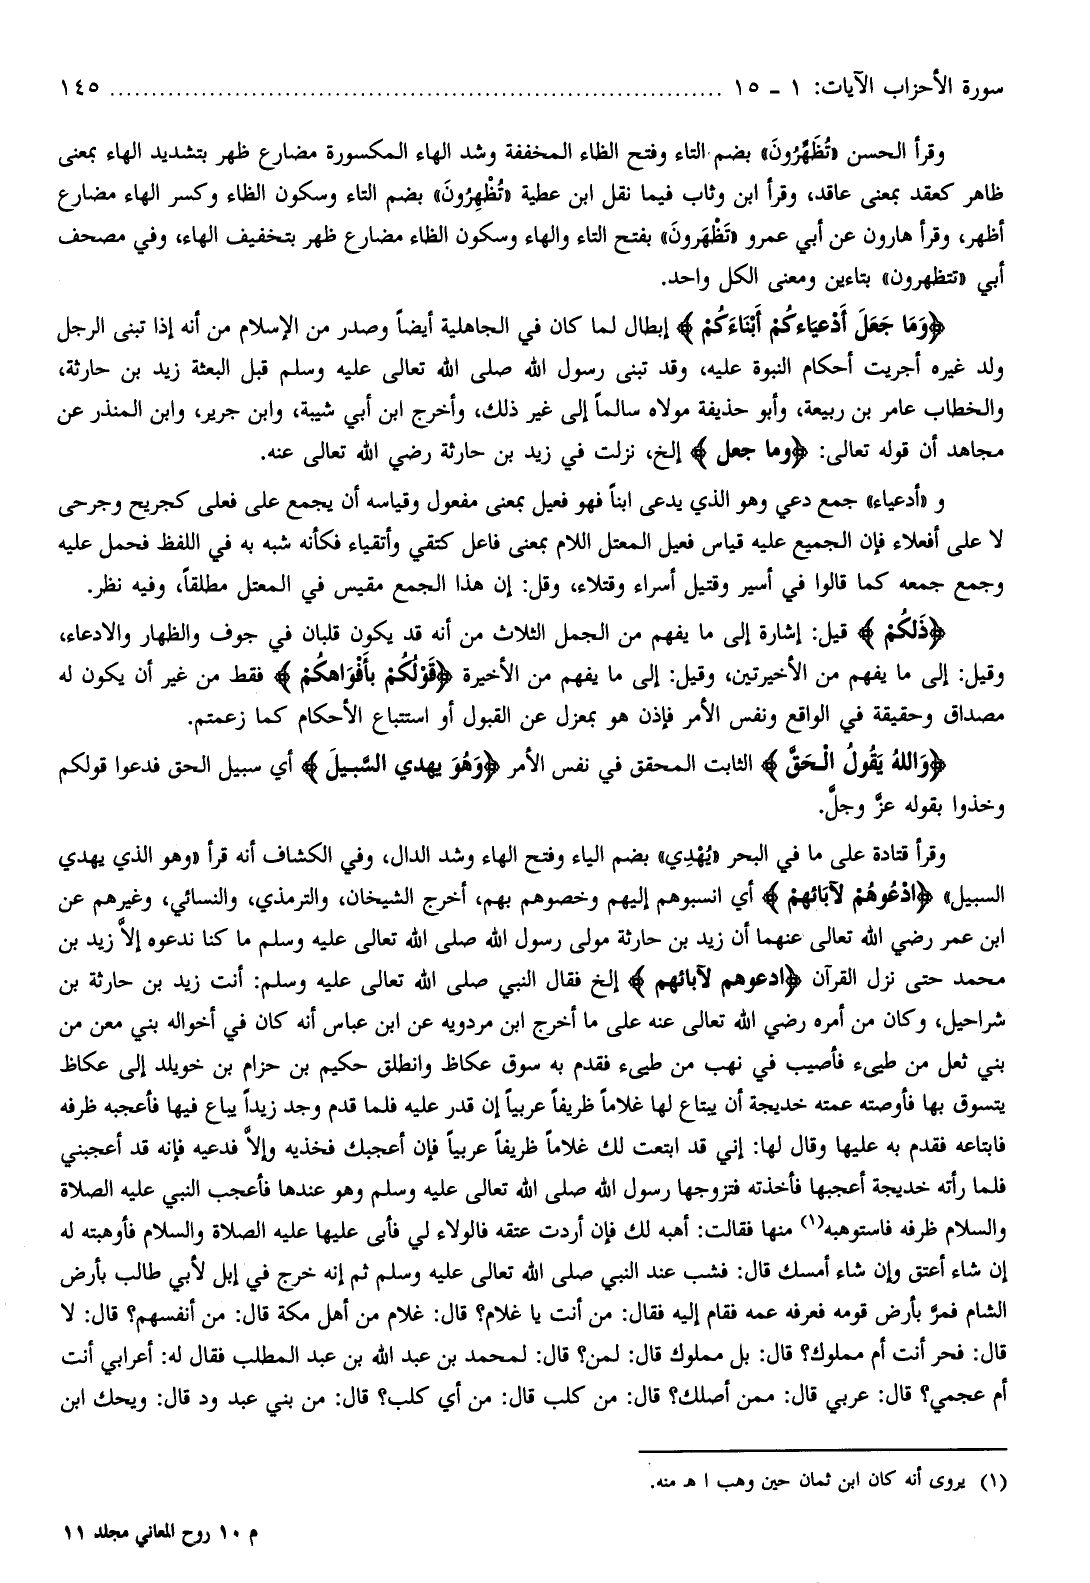 سورة الأحزاب الآيات: ١ - ١٥ ........................................................................ ١٤٥
وقرأ الحسن «تُظَهِّرُونَ» بضم التاء وفتح الظاء المخففة وشد الهاء المكسورة مضارع ظهر بتشديد الهاء بمعنى
ظاهر كعقد بمعنى عاقد، وقرأ ابن وثاب فيما نقل ابن عطية «تُظْهِرُونَ» بضم التاء وسكون الظاء وكسر الهاء مضارع
أظهر، وقرأ هارون عن أبي عمرو «تَظْهَرونَ» بفتح التاء والهاء وسكون الظاء مضارع ظهر بتخفيف الهاء، وفي مصحف
أبي «تتظهرون» بتاءين ومعنى الكل واحد.
﴿وَمَا جَعَلَ أَدْعيَاءكُمْ أَبْنَاءَكُمْ﴾ إبطال لما كان في الجاهلية أيضاً وصدر من الإسلام من أنه إذا تبنى الرجل
ولد غيره أجريت أحكام النبوة عليه، وقد تبنى رسول الله صلى الله تعالى عليه وسلم قبل البعثة زيد بن حارثة،
والخطاب عامر بن ربيعة، وأبو حذيفة مولاه سالماً إلى غير ذلك، وأخرج ابن أبي شيبة، وابن جرير، وابن المنذر عن
مجاهد أن قوله تعالى: ﴿وما جعل﴾ إلخ، نزلت في زيد بن حارثة رضي الله تعالى عنه.
و «أدعياء» جمع دعي وهو الذي يدعى ابناً فهو فعيل بمعنى مفعول وقياسه أن يجمع على فعلى كجريح وجرحى
لا على أفعلاء فإن الجميع عليه قياس فعيل المعتل اللام بمعنى فاعل كتقي وأتقياء فكأنه شبه به في اللفظ فحمل عليه
وجمع جمعه كما قالوا في أسير وقتيل أسراء وقتلاء، وقل: إن هذا الجمع مقيس في المعتل مطلقاً، وفيه نظر.
﴿ذَلكُمْ﴾ قيل: إشارة إلى ما يفهم من الجمل الثلاث من أنه قد يكون قلبان في جوف والظهار والادعاء،
وقيل: إلى ما يفهم من الأخيرتين، وقيل: إلى ما يفهم من الأخيرة ﴿قَوْلُكُمْ بأَفْوَاهكُمْ﴾ فقط من غير أن يكون له
مصداق وحقيقة في الواقع ونفس الأمر فإذن هو بمعزل عن القبول أو استتباع الأحكام كما زعمتم.
﴿وَاللهُ يَقُولُ الْحَقَّ﴾ الثابت المحقق في نفس الأمر ﴿وَهُوَ يهدي السَّبيلَ﴾ أي سبيل الحق فدعوا قولكم
وخذوا بقوله عزَّ وجلَّ.
وقرأ قتادة على ما في البحر «يُهْدِي» بضم الياء وفتح الهاء وشد الدال، وفي الكشاف أنه قرأ «وهو الذي يهدي
السبيل» ﴿ادْعُوهُمْ لآبَائهمْ﴾ أي انسبوهم إليهم وخصوهم بهم، أخرج الشيخان، والترمذي، والنسائي، وغيرهم عن
ابن عمر رضي الله تعالى عنهما أن زيد بن حارثة مولى رسول الله صلى الله تعالى عليه وسلم ما كنا ندعوه إلاَّ زيد بن
محمد حتى نزل القرآن ﴿ادعوهم لآبائهم﴾ إلخ فقال النبي صلى الله تعالى عليه وسلم: أنت زيد بن حارثة بن
شراحيل، وكان من أمره رضي الله تعالى عنه على ما أخرج ابن مردويه عن ابن عباس أنه كان في أخواله بني معن من
بني ثعل من طيىء فأصيب في نهب من طيىء فقدم به سوق عكاظ وانطلق حكيم بن حزام بن خويلد إلى عكاظ
يتسوق بها فأوصته عمته خديجة أن يبتاع لها غلاماً ظريفاً عربياً إن قدر عليه فلما قدم وجد زيداً يباع فيها فأعجبه ظرفه
فابتاعه فقدم به عليها وقال لها: إني قد ابتعت لك غلاماً ظريفاً عربياً فإن أعجبك فخذيه وإلاَّ فدعيه فإنه قد أعجبني
فلما رأته خديجة أعجبها فأخذته فتزوجها رسول الله صلى الله تعالى عليه وسلم وهو عندها فأعجب النبي عليه الصلاة
والسلام ظرفه فاستوهبه(١) منها فقالت: أهبه لك فإن أردت عتقه فالولاء لي فأبى عليها عليه الصلاة والسلام فأوهبته له
إن شاء أعتق وإن شاء أمسك قال: فشب عند النبي صلى الله تعالى عليه وسلم ثم إنه خرج في إبل لأبي طالب بأرض
الشام فمرَّ بأرض قومه فعرفه عمه فقام إليه فقال: من أنت يا غلام؟ قال: غلام من أهل مكة قال: من أنفسهم؟ قال: لا
قال: فحر أنت أم مملوك؟ قال: بل مملوك قال: لمن؟ قال: لمحمد بن عبد الله بن عبد المطلب فقال له: أعرابي أنت
أم عجمي؟ قال: عربي قال: ممن أصلك؟ قال: من كلب قال: من أي كلب؟ قال: من بني عبد ود قال: ويحك ابن
(١) يروى أنه كان ابن ثمان حين وهب ا هـ منه.
م ١٠ روح المعاني مجلد ١١